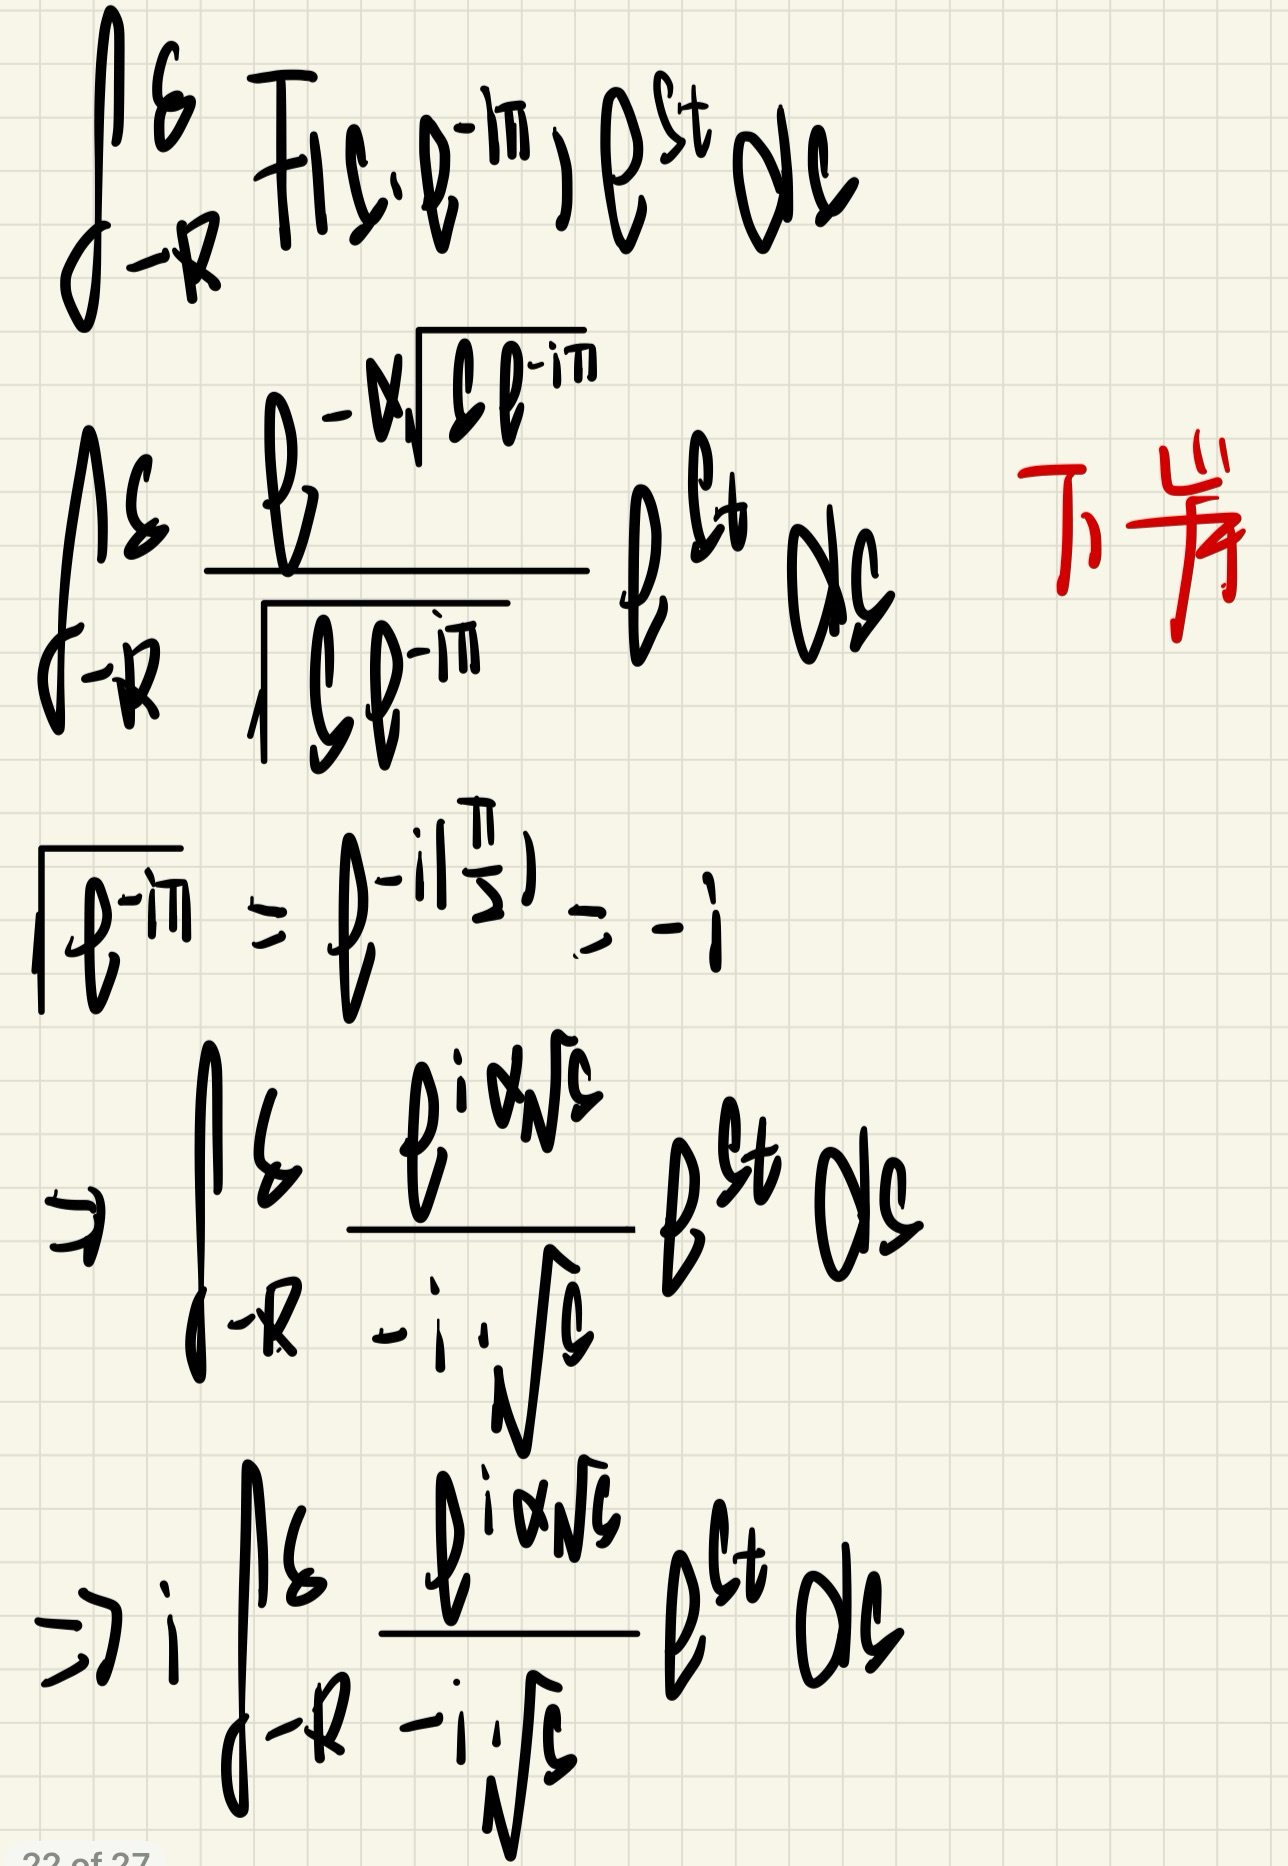 ∫_{-R}^{ε} F(s·e^{-iπ}) e^{st} ds
∫_{-R}^{ε} \frac{e^{-α\sqrt{s e^{-iπ}}}}{\sqrt{s e^{-iπ}}} e^{st} ds
\sqrt{e^{-iπ}} = e^{-i(\frac{π}{2})} = -i
⇒ ∫_{-R}^{ε} \frac{e^{iα\sqrt{s}}}{-i·\sqrt{s}} e^{st} ds
⇒ i ∫_{-R}^{ε} \frac{e^{iα\sqrt{s}}}{-i·\sqrt{s}} e^{st} ds
22 of 27